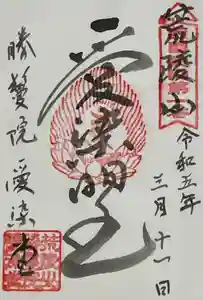 荒陵山
令和五年
三月十一日
愛染明王
勝鬘院 愛染堂